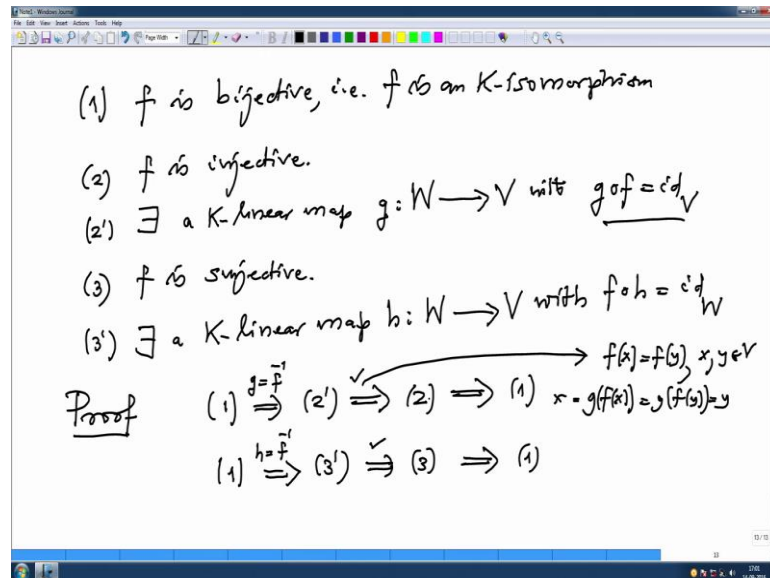 Note1 - Windows Journal
File Edit View Insert Actions Tools Help
Page Width
(1) f is bijective, i.e. f is an K-isomorphism
(2) f is injective.
(2') ∃ a K-linear map g: W ⟶ V with g∘f = id_V
(3) f is surjective.
(3') ∃ a K-linear map h: W ⟶ V with f∘h = id_W
f(x) = f(y), x, y ∈ V
Proof (1) ⟹ (2') ⟹ (2) ⟹ (1) x = g(f(x)) = g(f(y)) = y
g = f⁻¹ ✓
(1) ⟹ (3') ⟹ (3) ⟹ (1)
h = f⁻¹ ✓
13/13
13
17:01